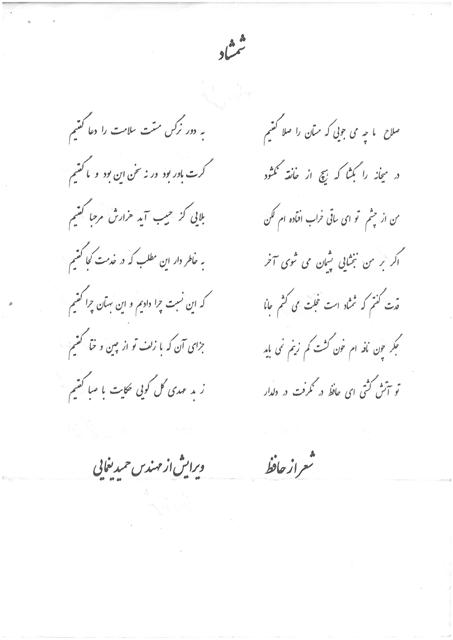 شمشاد
صلاح ما چه می جویی که مستان را صلا گفتیم به دور نرگس مستت سلامت را دعا گفتیم
در میخانه را بگشا که هیچ از خانقه نگشود گرت باور بود ور نه سخن این بود و ما گفتیم
من از چشم تو ای ساقی خراب افتاده ام لکن بلایی کز حبیب آید هزارش مرحبا گفتیم
اگر بر من نبخشایی پشیمان می شوی آخر به خاطر دار این مطلب که در خدمت کجا گفتیم
قدت گفتم که شمشاد است خجلت می کشم جانا که این نسبت چرا دادیم و این بهتان چرا گفتیم
جگر چون نافه ام خون گشت کم زینم نمی باید جزای آن که با زلف تو از چین و ختا گفتیم
تو آتش گشتی ای حافظ در نگرفت در دلدار ز بد عهدی گل گویی حکایت با صبا گفتیم
شعر از حافظ ویرایش از مهندس حمید یغمایی